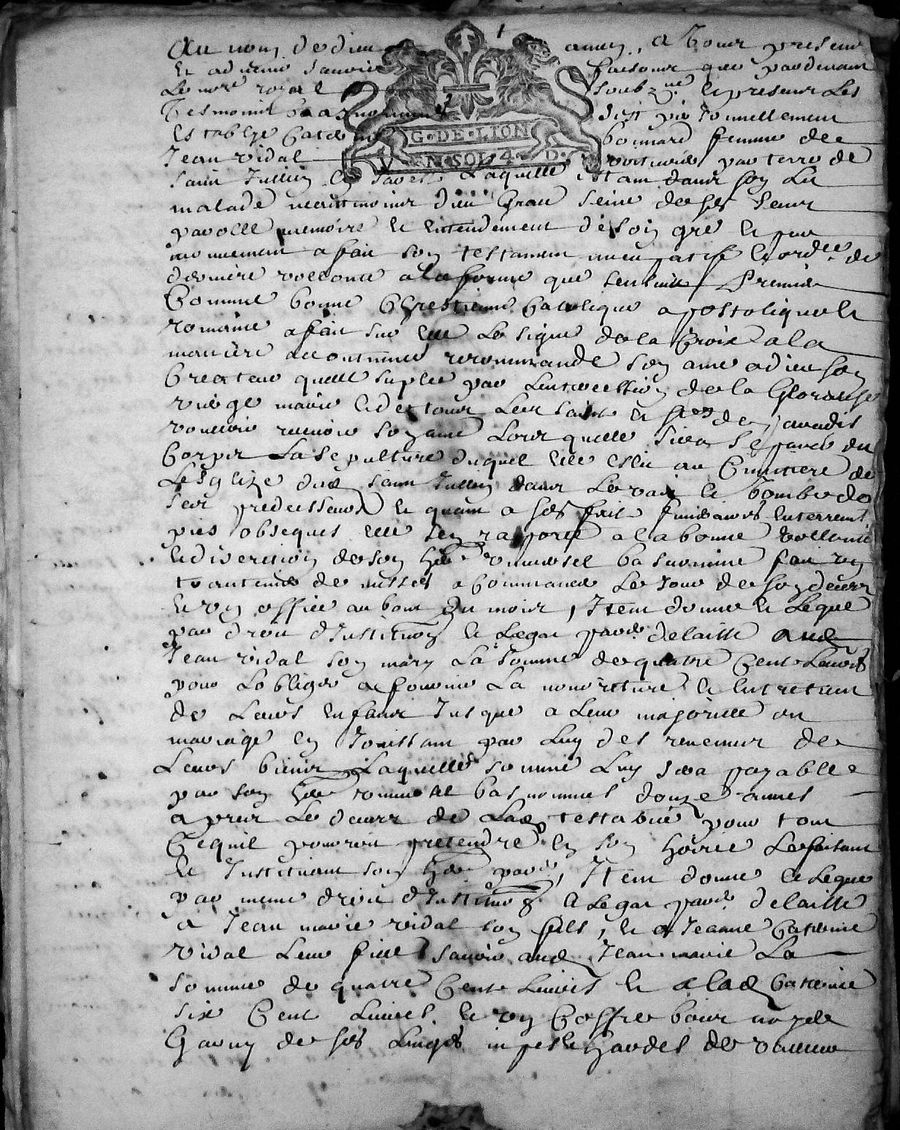 Au nom de dieu amen, a tous presens
et advenir savoir faisons que pardevant
Le nore royal soubzne et presens Les
tesmoins bas nommes s'est personnellement
establye Catherine bonnard femme de
Jean vidal voiturier par terre de
saint Jullien Laquelle estant dans son lit
malade neantmoins dieu grace seine de ses sens
parolle memoire et entendement de son gré et pur
mouvement a fait son testament nuncupatif et ordre de
derniere vollonté a la forme que sensuit Premier
Comme bonne Chrestienne Catolique apostolique et
romaine a fait sur elle Le signe de la Croix a la
maniere accoutumée recommande son ame a dieu son
Createur quelle suplie par Lintercession de la Glorieuse
vierge marie et de tous Les saints et stes de paradis
vouloir recevoir son ame Lors quelle sera separée du
Corps La sepulture duquel elle eslit au Cimitiere de
Leglize dud saint Jullien dans Le vas et Tombe de
ses predecesseurs et quant a ses frais funeraires enterrement
pies obseques elle sen raporte a la bonne vollonté
et discretion de son her universel bas nommé
trantene de messes a Commancer Le jour de son deces
et un office au bout du mois, Item donne et Legue
par droit d'Institution et Legat delaisse aud
Jean vidal son mary La somme de quatre Cent Livres
pour Lobliger a fournir La nourriture et entretient
de Leurs enfans Jusque a Leur majorité ou
mariage en Jouissant par Luy des revenus de
Leurs biens Laquelle somme Luy sera payable
par son her universel bas nommés douze années
apres Le deces de Lad testatrice pour tout
Cequil pourroit pretendre en son hoirie Le faisant
et Instituant son her par, Item donne et Legue
par meme droit d'Institution et Legat delaisse
a Jean marie vidal son fils, et a Jeanne Catherine
vidal Leur fille savoir aud Jean marie La
somme de quatre Cent Livres et a lad Catherine
six Cent Livres, et un Coffre bois noyer
Garny de ses Linges
G·DE·LION
N·SOL 4·D·